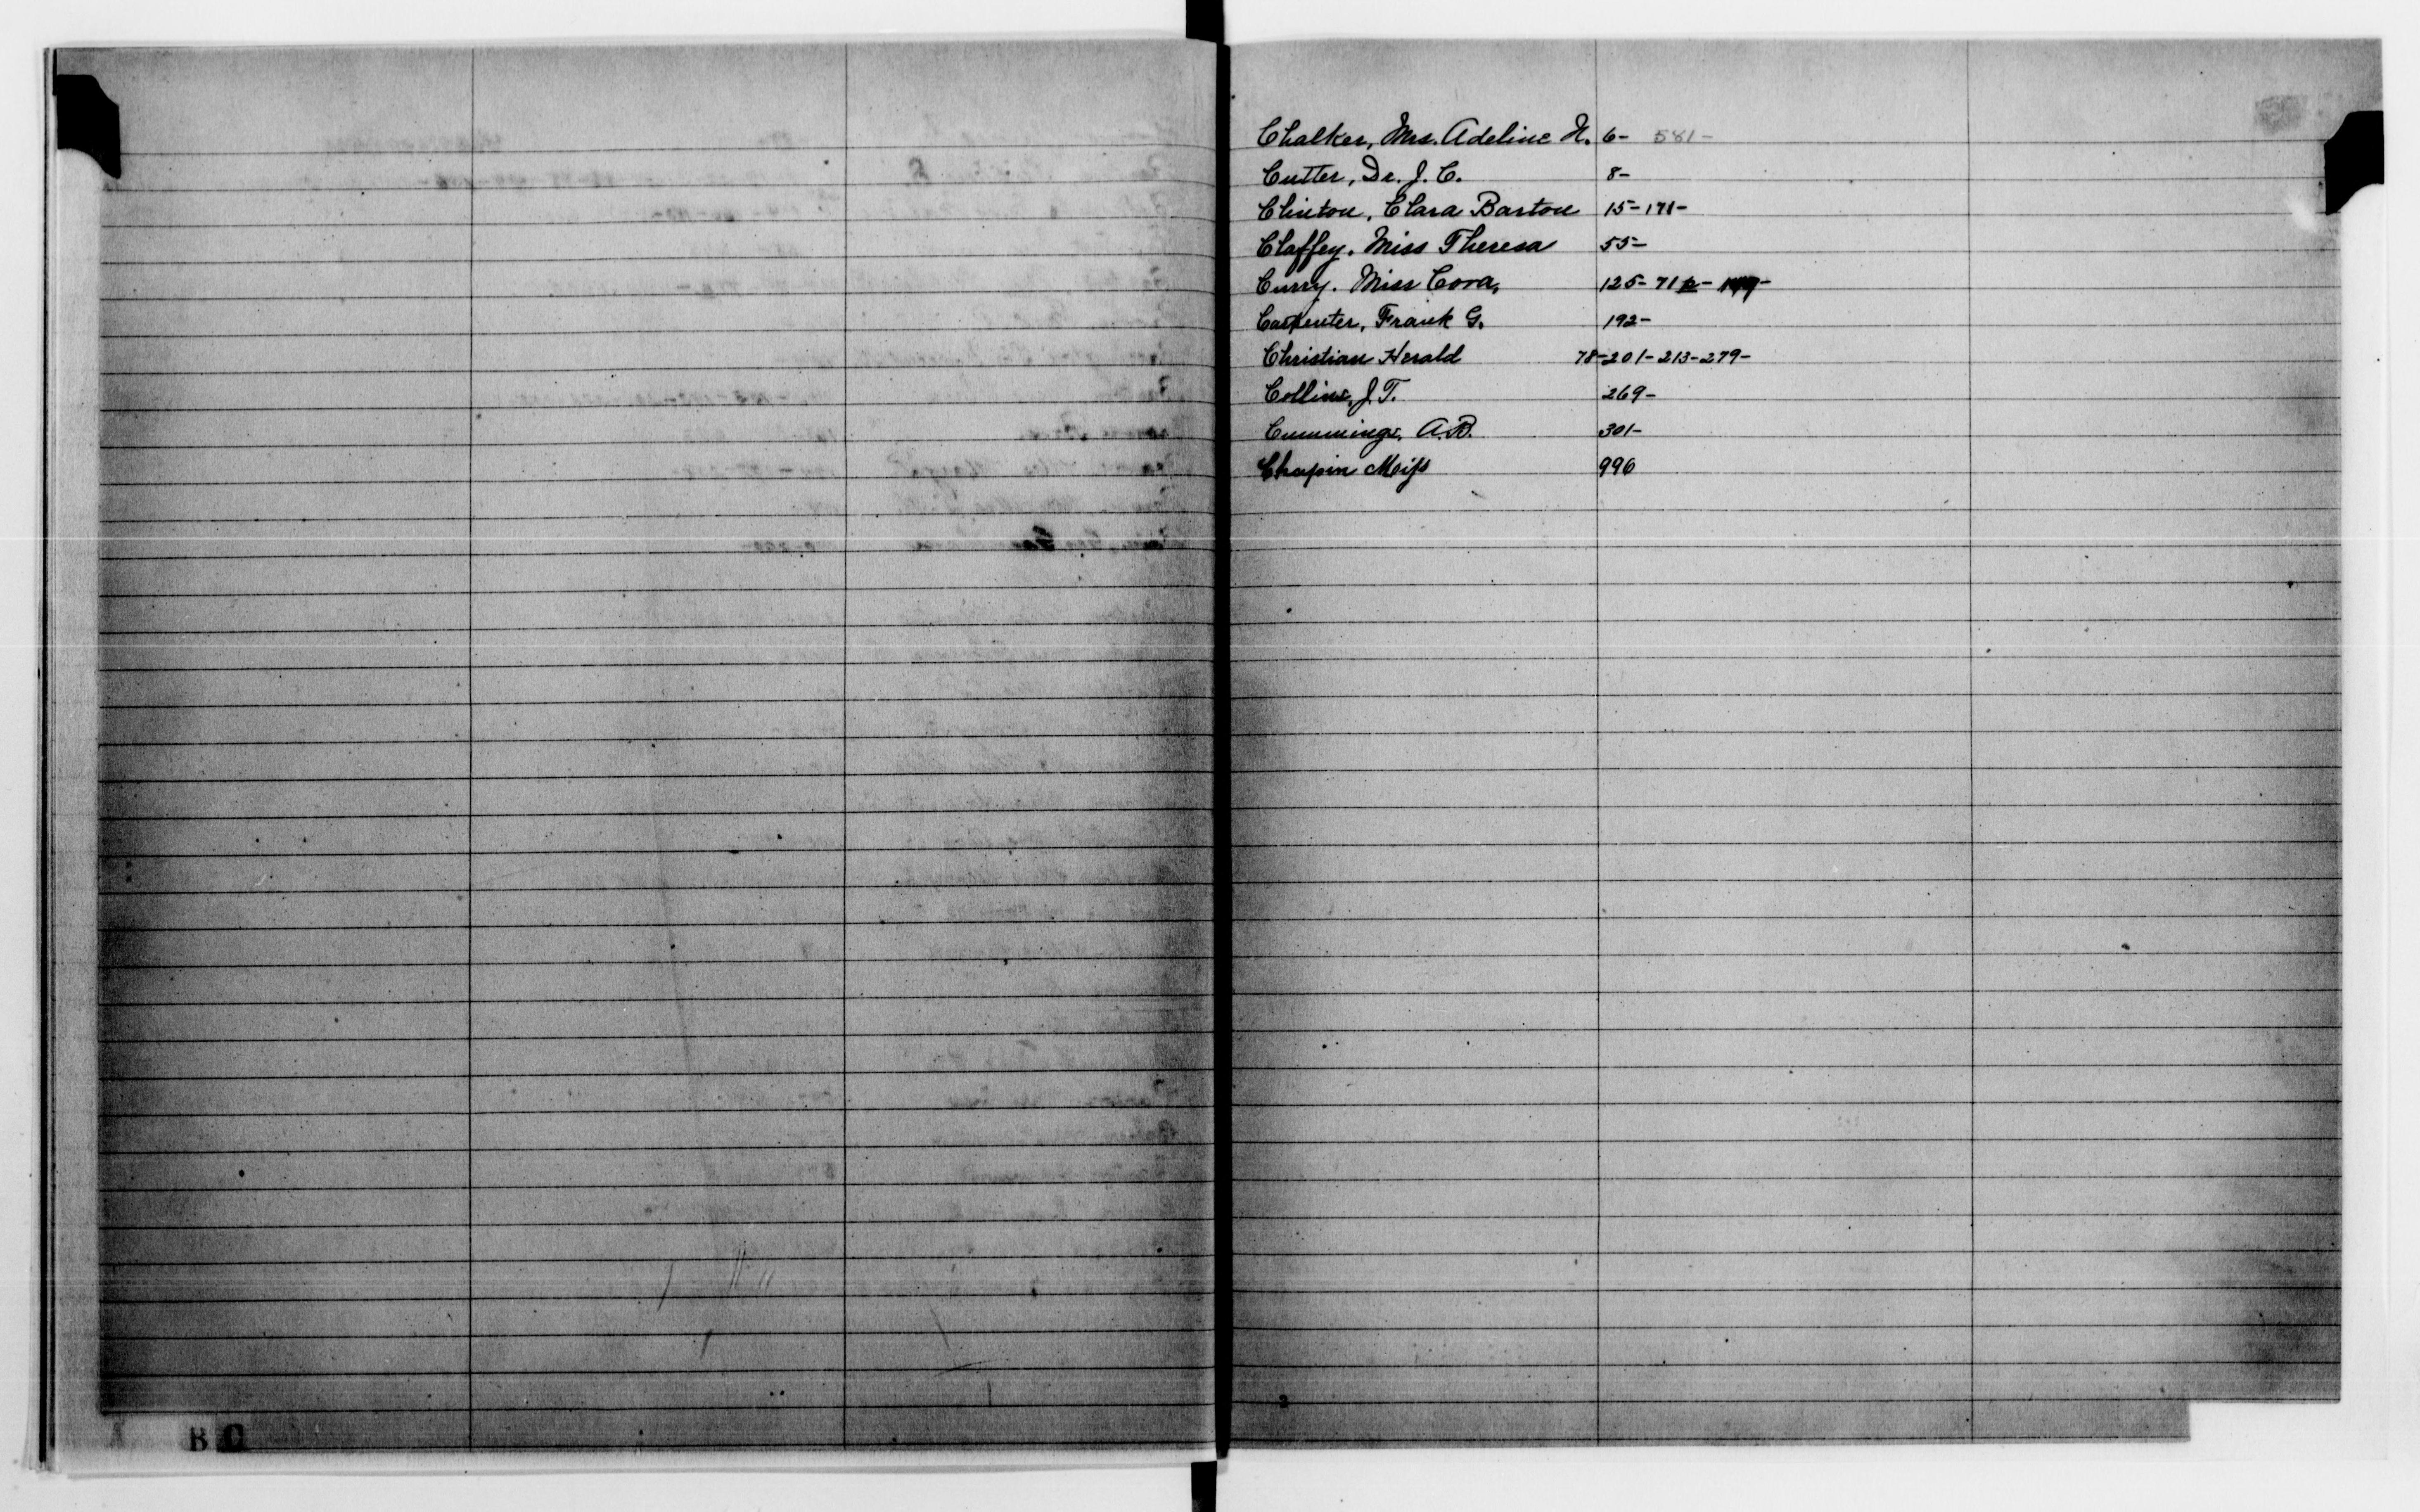 Chalker, Mrs. Adeline N. 6- 581-
Cutter, Dr. J. C. 8-
Clinton, Clara Barton 15-171-
Claffey, Miss Theresa 55-
Curry. Miss Cora, 125-71
Carpenter, Frank G. 192-
Christian Herald 78-201-213-279-
Collins, J. T. 269-
Cummings, A.B. 301-
Chapin Miss 996
B